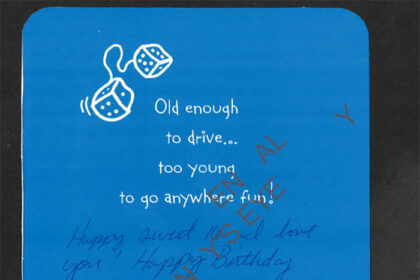 Old enough
to drive...
too young
to go anywhere fun!
Happy sweet 16 I love
you! Happy Birthday